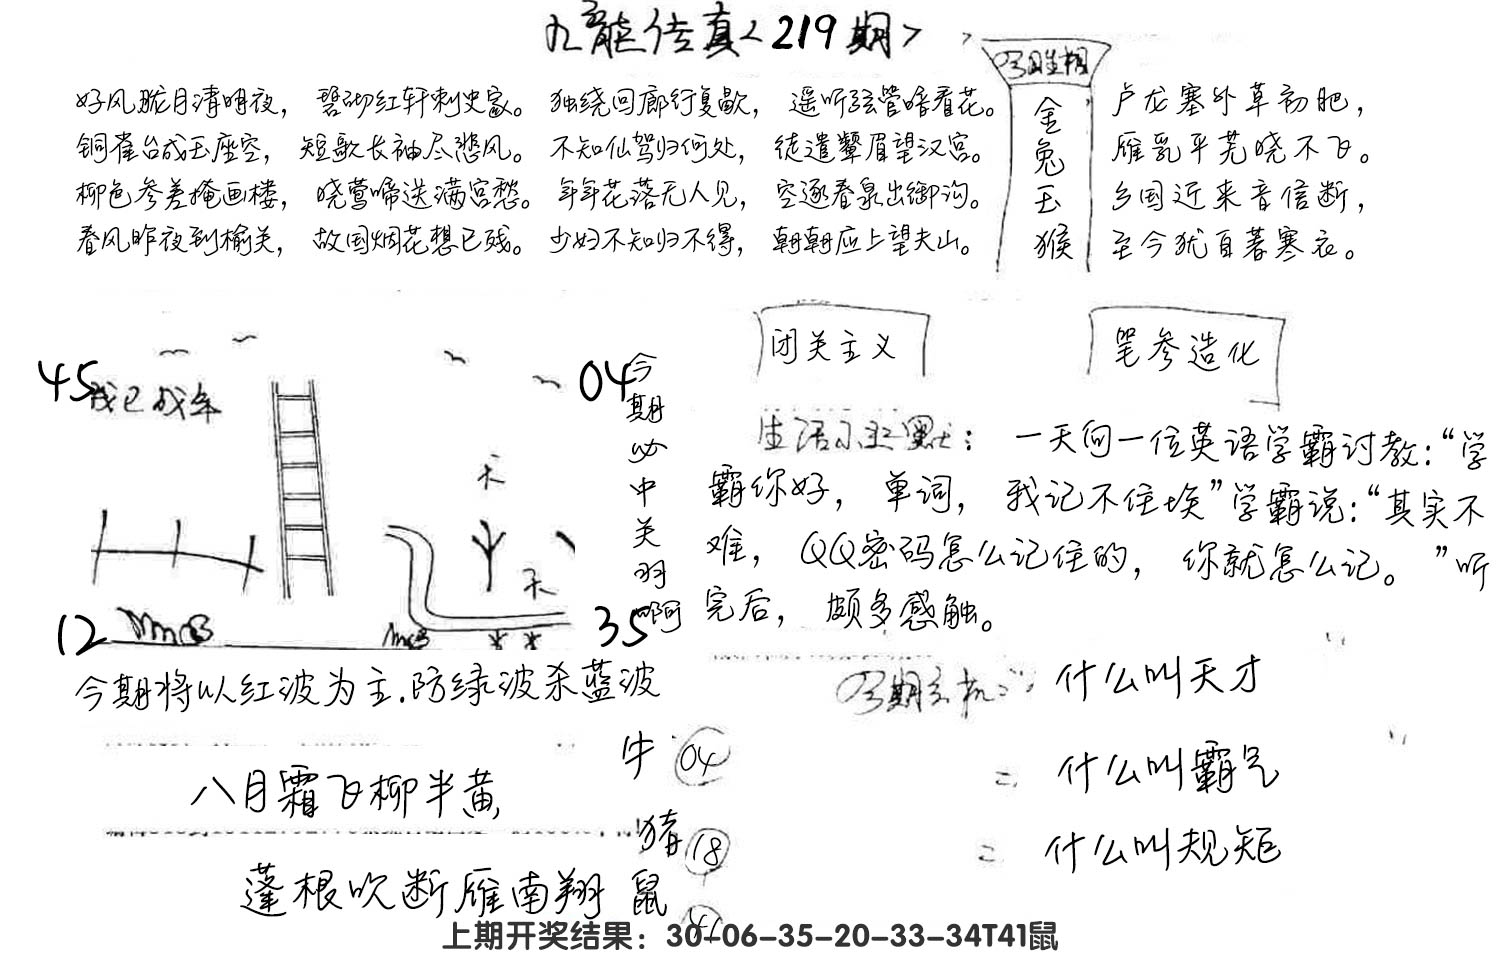 九龙传真<219期>
好风胧月清明夜，碧砌红轩刺史家。独绕回廊行复歇，遥听弦管暗看花。
铜雀台成玉座空，短歌长袖尽悲风。不知仙驾归何处，徒遣颦眉望汉宫。
柳色参差掩画楼，晓莺啼送满宫愁。年年花落无人见，空逐春泉出御沟。
春风昨夜到榆关，故国烟花想已残。少妇不知归不得，朝朝应上望夫山。
今日生相
金兔玉猴
卢龙塞外草初肥，
雁乳平芜晓不飞。
乡国近来音信断，
至今犹自著寒衣。
45
我已成年
04
天
天
12
35
今期必中关羽啊
闭关主义
笔参造化
生活小幽默：一天向一位英语学霸讨教：“学
霸你好，单词，我记不住埃”学霸说：“其实不
难，QQ密码怎么记住的，你就怎么记。”听
完后，颇多感触。
今期将以红波为主.防绿波杀蓝波
今期玄机：什么叫天才
什么叫霸气
什么叫规矩
八月霜飞柳半黄
蓬根吹断雁南翔
牛 04
猪 18
鼠 41
上期开奖结果：30-06-35-20-33-34T41鼠